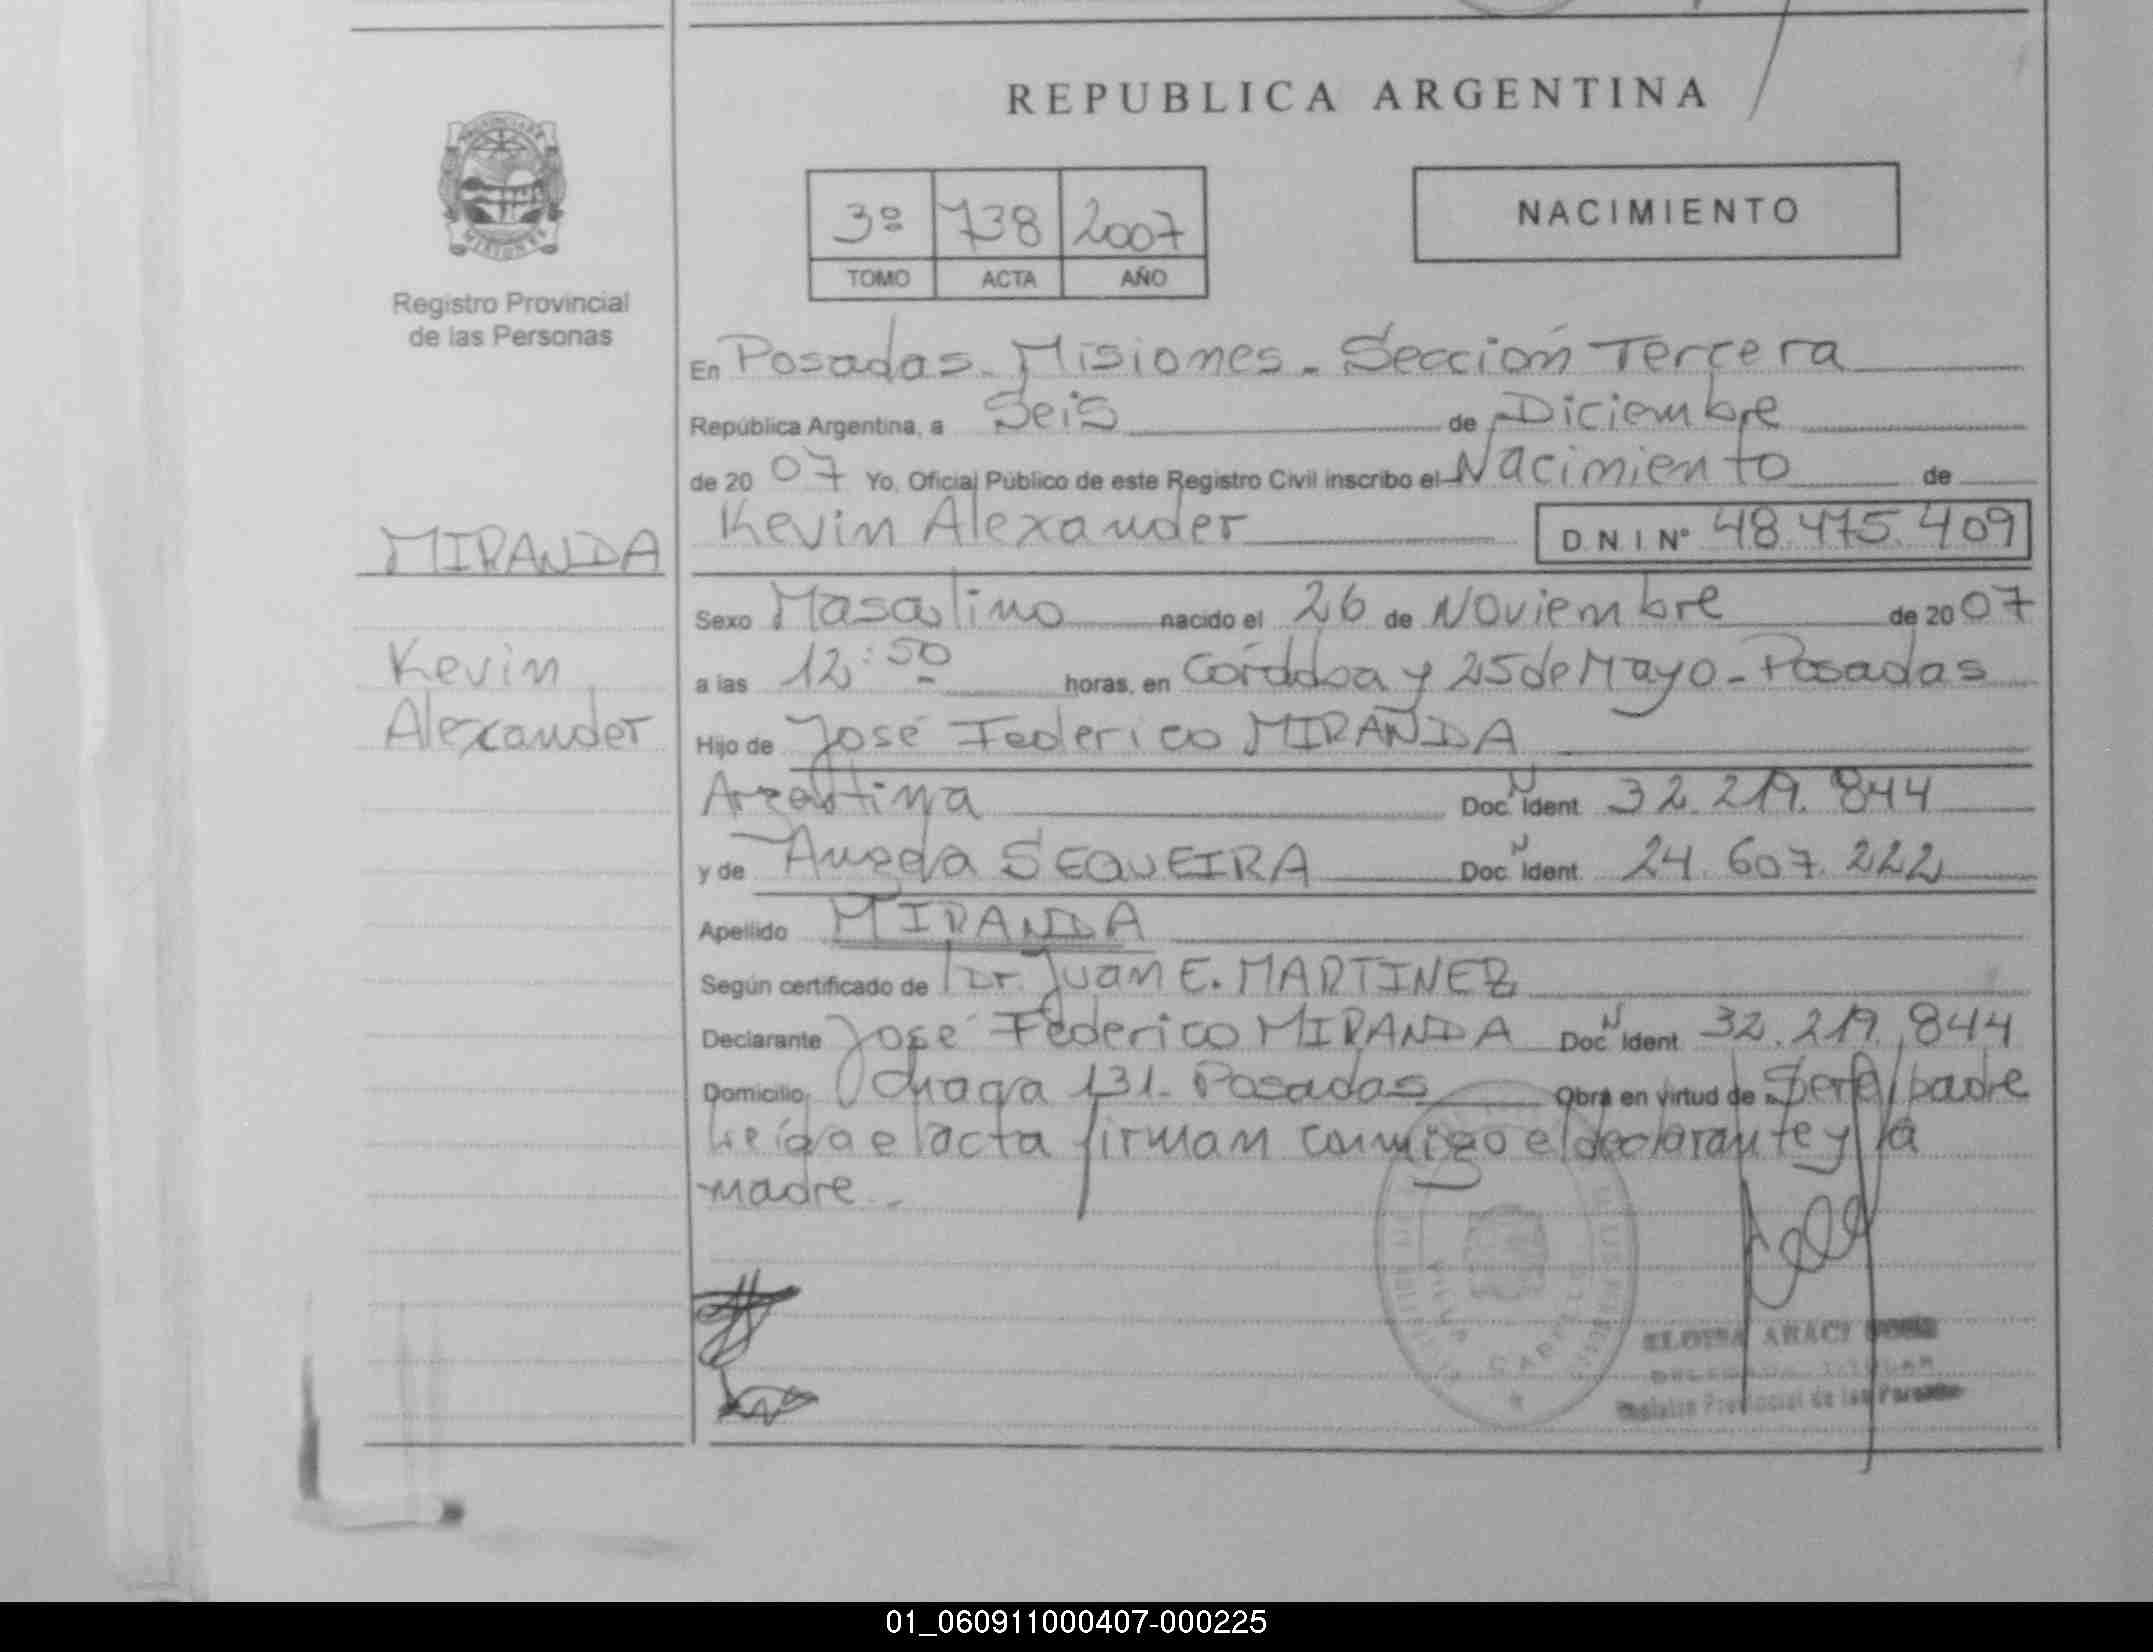 REPUBLICA ARGENTINA
MISIONES
Registro Provincial
de las Personas
3º 738 2007
TOMO ACTA AÑO
NACIMIENTO
En Posadas. Misiones. Sección Tercera
República Argentina, a Seis de Diciembre
de 20 07 Yo, Oficial Público de este Registro Civil inscribo el Nacimiento de
MIRANDA
Kevin Alexander D N I Nº 48.475.409
Sexo Masculino nacido el 26 de Noviembre de 20 07
Kevin
a las 12:50 horas, en Córdoba y 25 de Mayo - Posadas
Alexander
Hijo de José Federico MIRANDA
Argentina Doc N Ident 32.219.844
y de SEQUEIRA Doc N Ident. 24.607.222
Apellido MIRANDA
Según certificado de Dr. Juan E. MARTINEZ
Declarante José Federico MIRANDA Doc N Ident 32.219.844
Domicilio 131 - Posadas Obra en virtud de Ser el padre
Leída el acta firman conmigo el declarante y la
madre.
ELOISA ARACI
Registro Provincial de las Personas
01_060911000407-000225